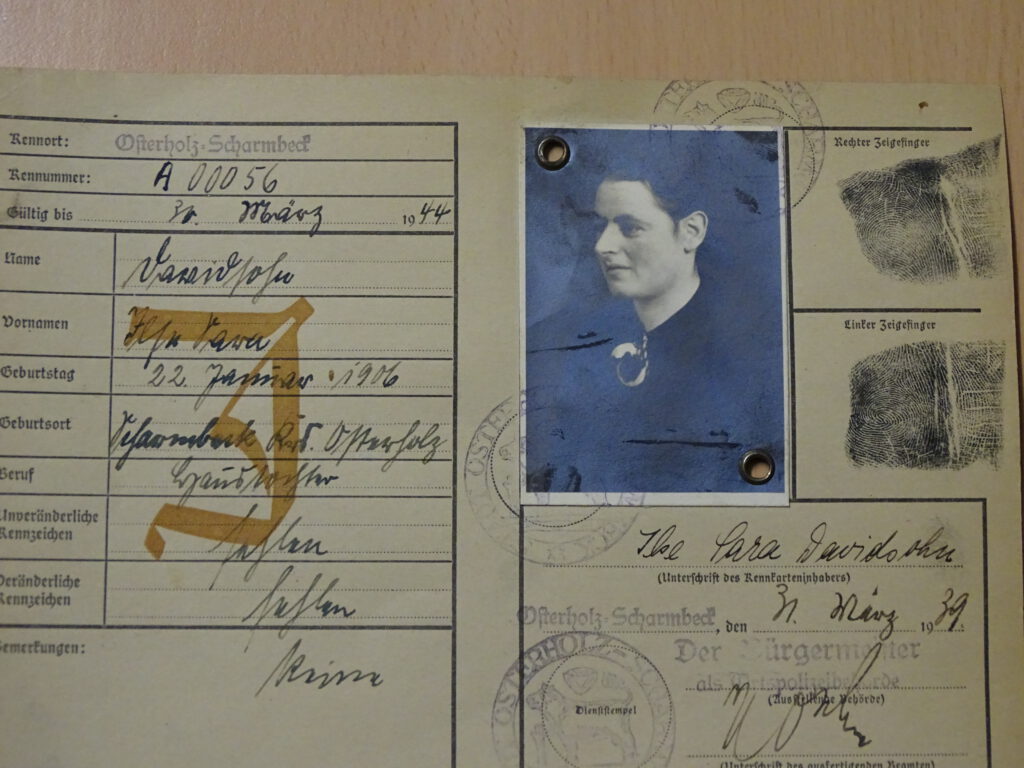 Kennort: Osterholz-Scharmbeck
Kennummer: A 00056
Gültig bis 31. März 1944
Name Davidsohn
Vornamen Ilse Sara
Geburtstag 22. Januar 1906
Geburtsort Scharmbeck Krs. Osterholz
Beruf Haustochter
Unveränderliche
Kennzeichen fehlen
Veränderliche
Kennzeichen fehlen
Bemerkungen: Keine
J
Rechter Zeigefinger
Linker Zeigefinger
Ilse Sara Davidsohn
(Unterschrift des Kennkarteninhabers)
Osterholz-Scharmbeck, den 31. März 1939.
Der Bürgermeister
als Ortspolizeibehörde
(Ausstellende Behörde)
Dienststempel
(Unterschrift des ausfertigenden Beamten)